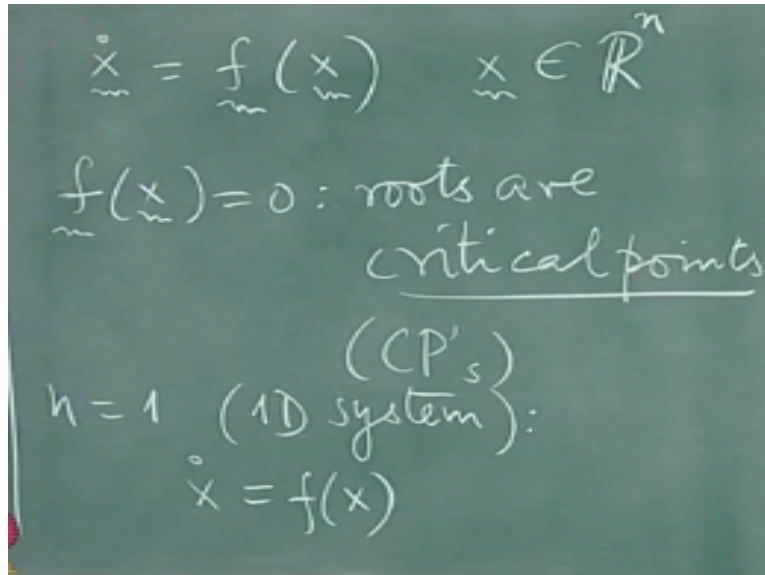 ẋ = f(x) x ∈ ℝⁿ
f(x) = 0 : roots are
critical points
(CP's)
n = 1 (1D system):
ẋ = f(x)